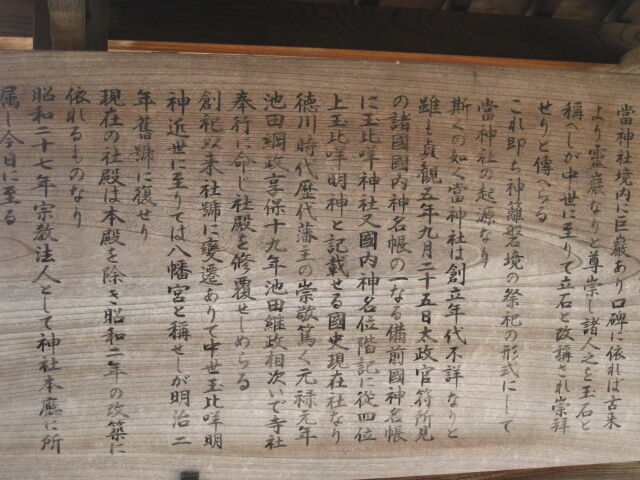 當神社境内に巨巌あり口碑に依れば古来
より霊巌なりと尊崇し諸人之を玉石と
稱へしが中世に至りて立石と改稱され崇拜
せりと傳へらる
これ即ち神籬磐境の祭祀の形式にして
當神社の起源なり
斯くの如く當神社は創立年代不詳なりと
雖も貞観五年九月二十五日太政官符所見
の諸國國内神名帳の一なる備前國神名帳
に玉比咩神社又國内神名位階記に從四位
上玉比咩明神と記載せる國史現在社なり
徳川時代歴代藩主の崇敬篤く元禄元年
池田綱政享保十九年池田継政相次いで寺社
奉行に命じ社殿を修覆せしめらる
創祀以来社號に変遷ありて中世玉比咩明
神近世に至りては八幡宮と稱せしが明治二
年舊號に復せり
現在の社殿は本殿を除き昭和二年の改築に
依れるものなり
昭和二十七年宗教法人として神社本廳に所
属し今日に至る